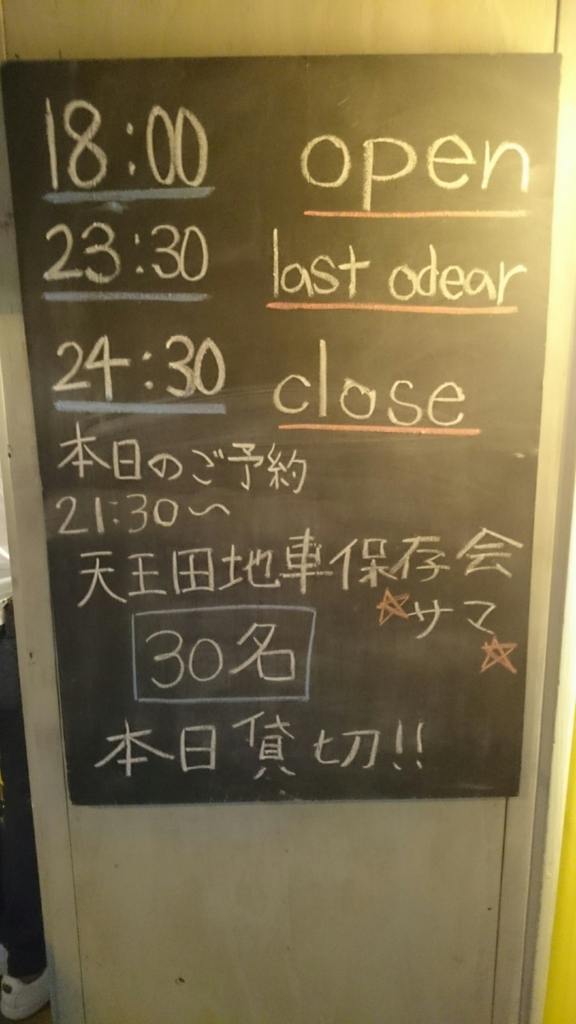 18:00 open
23:30 last odear
24:30 close
本日のご予約
21:30〜
天王田地車保存会
☆サマ☆
30名
本日貸切!!